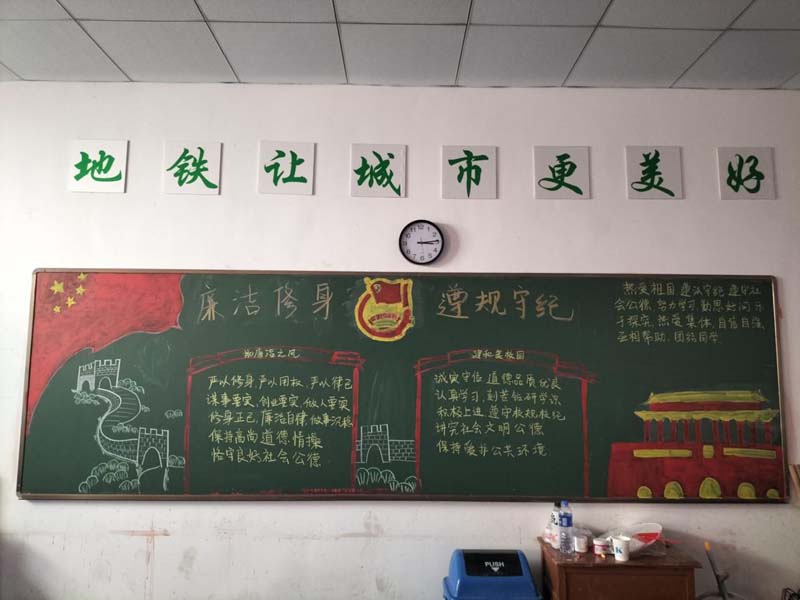 地铁让城市更美好
廉洁修身 遵规守纪
热爱祖国 遵纪守法 遵守社
会公德 努力学习 勤思好问 乐
于探究 热爱集体 自信自强
互相帮助 团结同学
严以修身 严以用权 严以律己
谋事要实 创业要实 做人要实
修身正己 廉洁自律 做事沉稳
保持高尚道德情操
恪守良好社会公德
建和美校园
诚实守信 道德品质优良
认真学习 刻苦钻研学识
积极上进 遵守校规校纪
讲究社会文明公德
保持爱护公共环境
PUSH